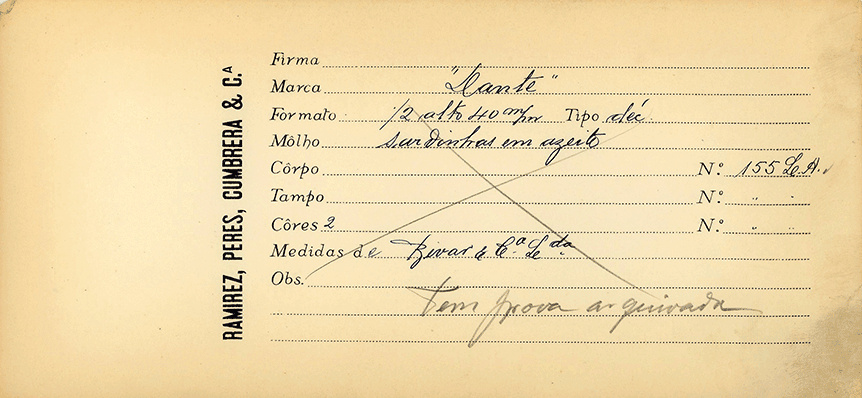 RAMIREZ, PERES, CUMBRERA & C.ᴬ
Firma
Marca "Dante"
Formato 1/2 alto 40 m/m Tipo déc.
Môlho sardinhas em azeite
Côrpo N.º 155 L.A.
Tampo N.º " "
Côres 2 N.º " "
Medidas de Rivar & C.ª L.da
Obs.
Tem prova arquivada